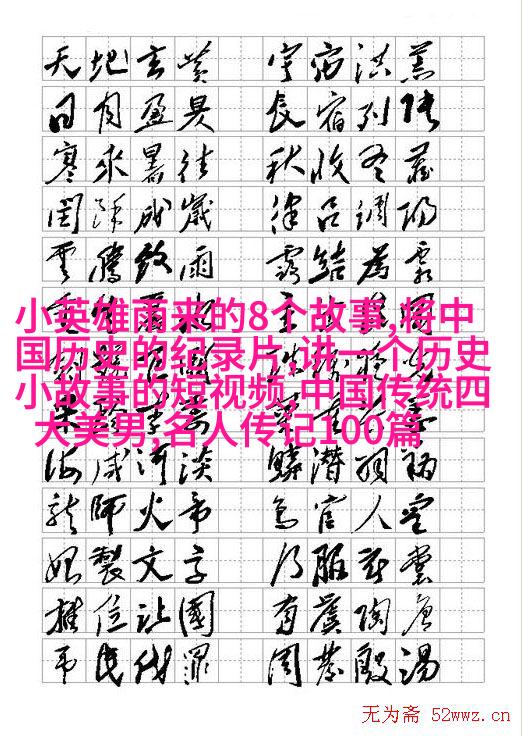 天地玄黃 宇宙洪荒
日月盈昃 辰宿列張
寒來暑往 秋收冬藏
閏餘成歲 律呂調陽
雲騰致雨 露結為霜
小英雄雨来的8个故事,将中
国历史的纪录片,讲一个历史
小故事的短视频,中国传统四
大美男,名人传记100篇
海咸河淡 鱗潛羽翔
龍師火帝 鳥官人皇
始製文字 乃服衣裳
推位让國 有虞陶唐
弔民伐罪 周發殷湯
无为斋 52wwz.cn